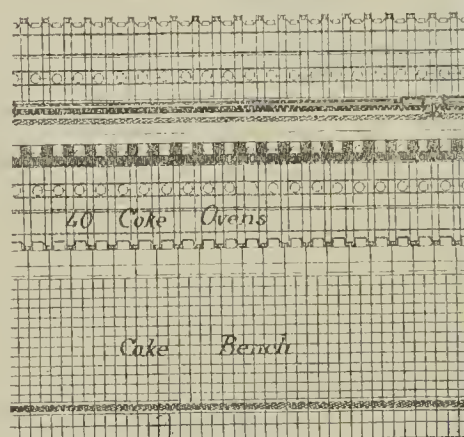 40 Coke Ovens
Coke Bench